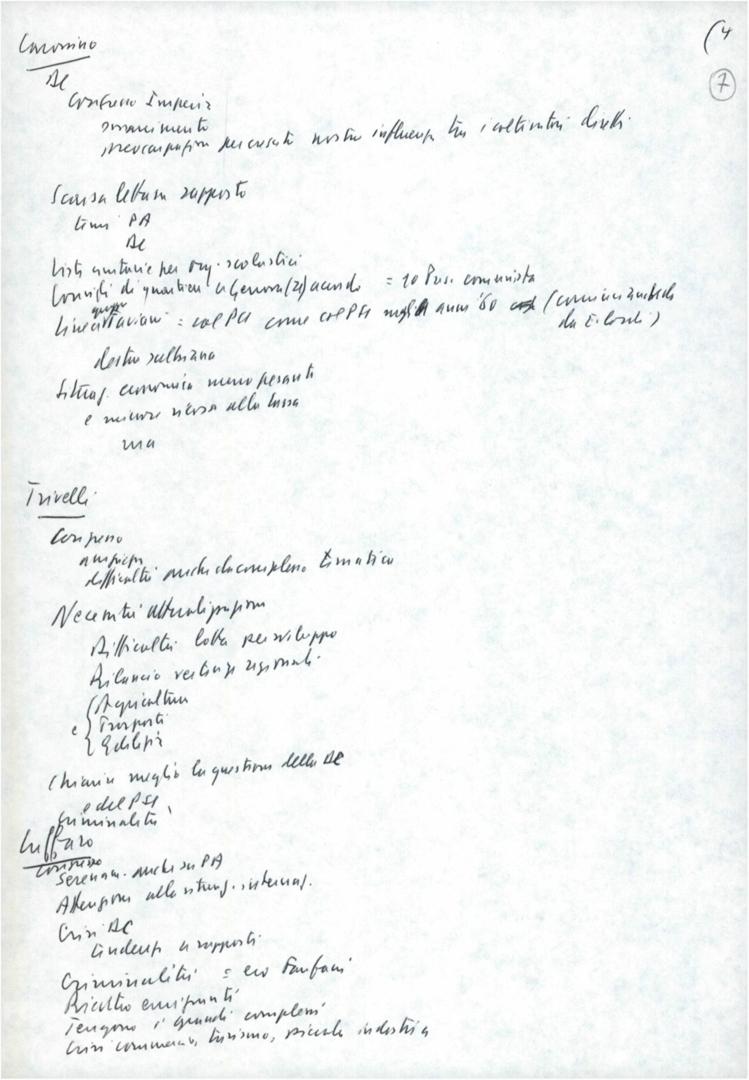 (4
7
Carossino
DC
Congresso Imperia
smarrimento
preoccupazioni per crescita nostra influenza tra i coltivatori diretti
Scarsa lettura rapporto
temi PA
DC
Liste unitarie per org. scolastici
Consigli di quartiere a Genova (21) accordo = 10 Pres. comunista
gruppo
Linea Taviani = col PCI come col PSI negli anni '60 (
da E.
destra
Situaz. economica meno pesante
e minore ricorso alla cassa
ma
Trivelli
Congresso
ampiezza
difficoltà anche da complesso tematico
Necessità attualizzazione
Difficoltà lotta per sviluppo
Rilancio vertenze regionali
Agricoltura
e Trasporti
Edilizia
Chiarire meglio la questione della DC
e del PSI
Criminalità
Cuffaro
Congresso
Seren. anche su PA
Attenzione alla situaz. internaz.
Crisi DC
tendenze a rapporti
Criminalità = eco Fanfani
Ricatto emigranti
Tengono i grandi complessi
Crisi commercio, turismo, piccola industria